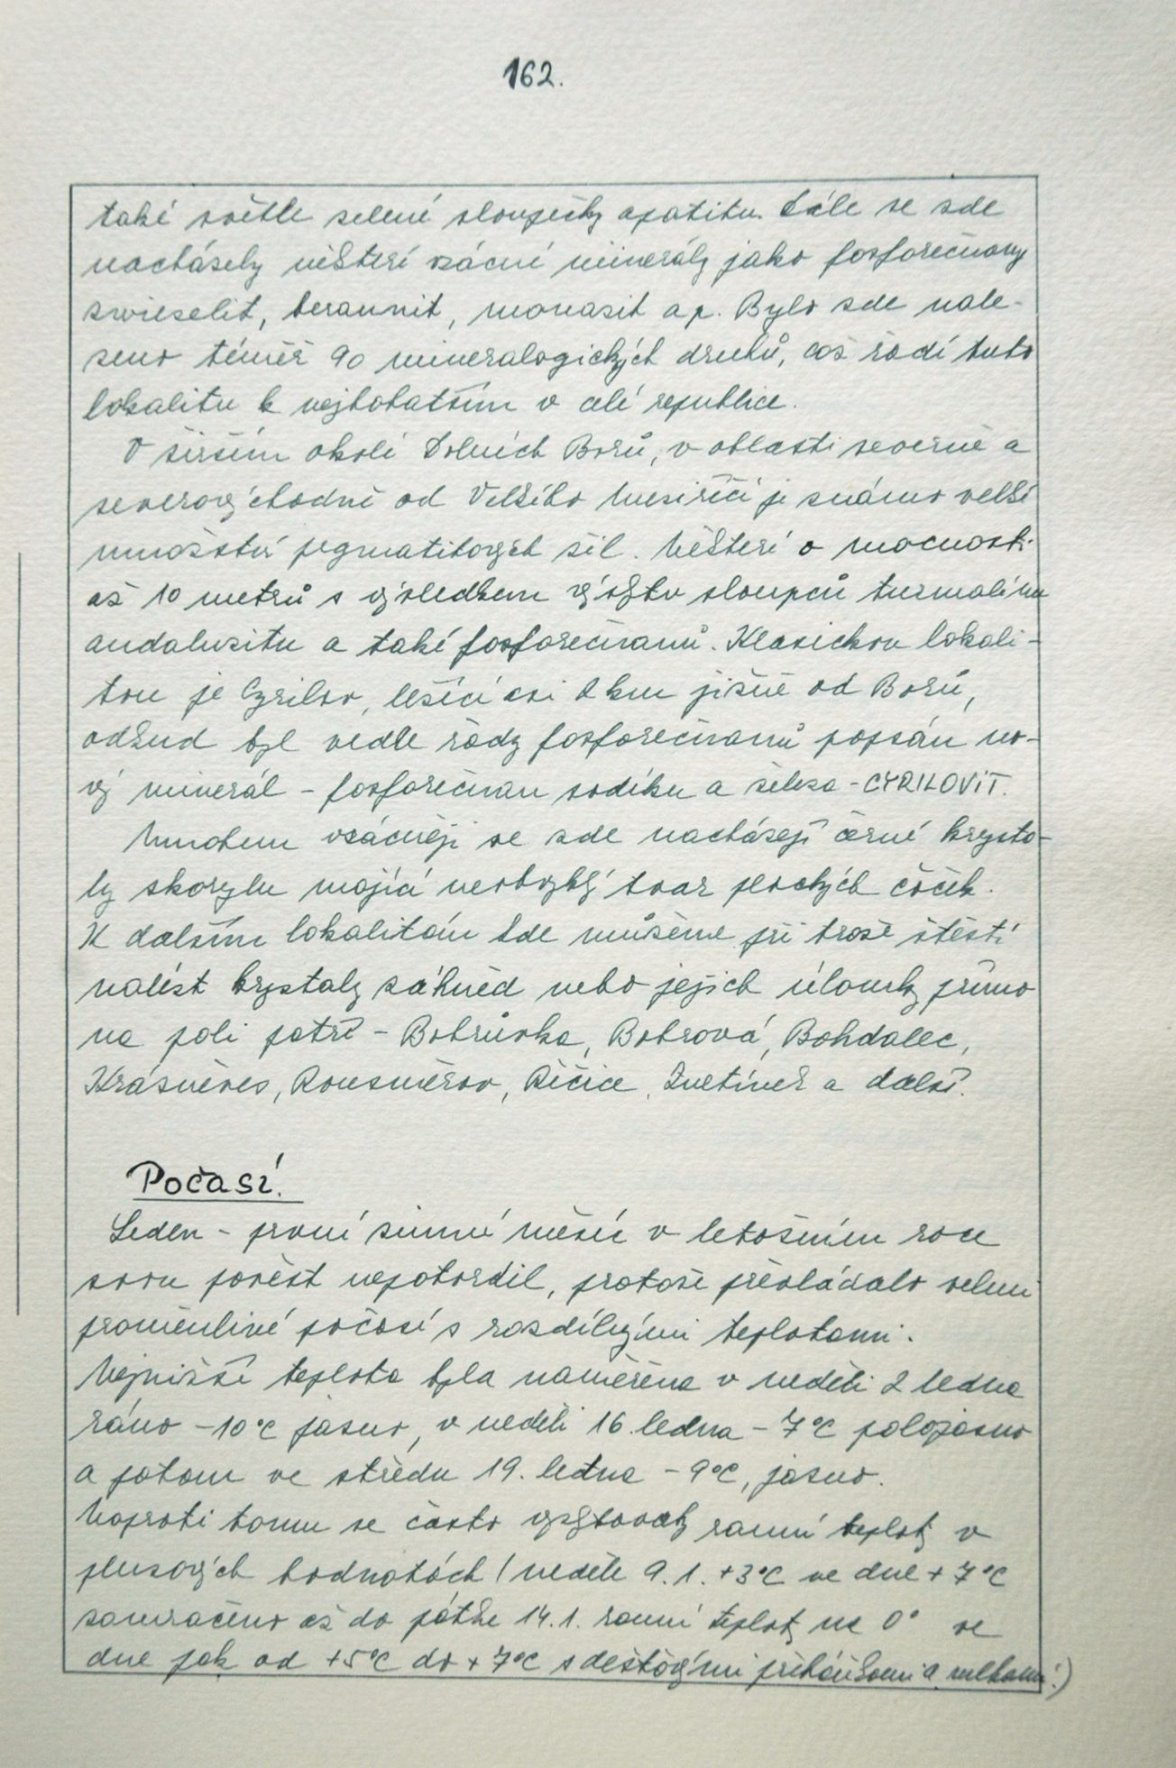 162.
také světle zelené sloupečky apatitu. Dále se zde
nacházely někteří vzácní minerály jako fosforečnany
zwieselit, beraunit, monazit ap. Bylo zde nale-
zeno téměř 90 mineralogických druhů, což řadí tuto
lokalitu k nejbohatším v celé republice.
V širším okolí Dolních Borů, v oblasti severně a
severovýchodně od Velkého Meziříčí je známo velké
množství pegmatitových žil. Některé o mocnosti
až 10 metrů s výsledkem výskytu sloupců turmalínu
andaluzitu a také fosforečnanů. Klasickou lokali-
tou je Cyrilov, ležící asi 2 km jižně od Borů,
odkud byl vedle řady fosforečnanů popsán no-
vý minerál - fosforečnan sodíku a železa - CYRILOVIT.
Mnohem vzácněji se zde nacházejí černé krysta-
ly skorylu mající neobvyklý tvar plochých čoček.
K dalším lokalitám kde můžeme při troše štěstí
nalézt krystaly záhněd nebo jejich úlomky přímo
na poli patří - Bobrůvka, Bobrová, Bohdalec,
Krásněves, Rousměrov, Řečice, Znětínek a další.
Počasí.
Leden - první zimní měsíc v letošním roce
svou pověst nepotvrdil, protože převládalo velmi
proměnlivé počasí s rozdílnými teplotami.
Nejnižší teplota byla naměřena v neděli 2 ledna
ráno -10°C jasno, v neděli 16. ledna - 7°C polojasno
a potom ve středu 19. ledna - 9°C, jasno.
Naproti tomu se často vyskytovaly ranní teploty v
plusových hodnotách (neděle 9.1. +3°C ve dne +7°C
zamračeno až do pátku 14.1. ranní teploty na 0° ve
dne pak od +5°C do +7°C s dešťovými přeháňkami a mlhami.)